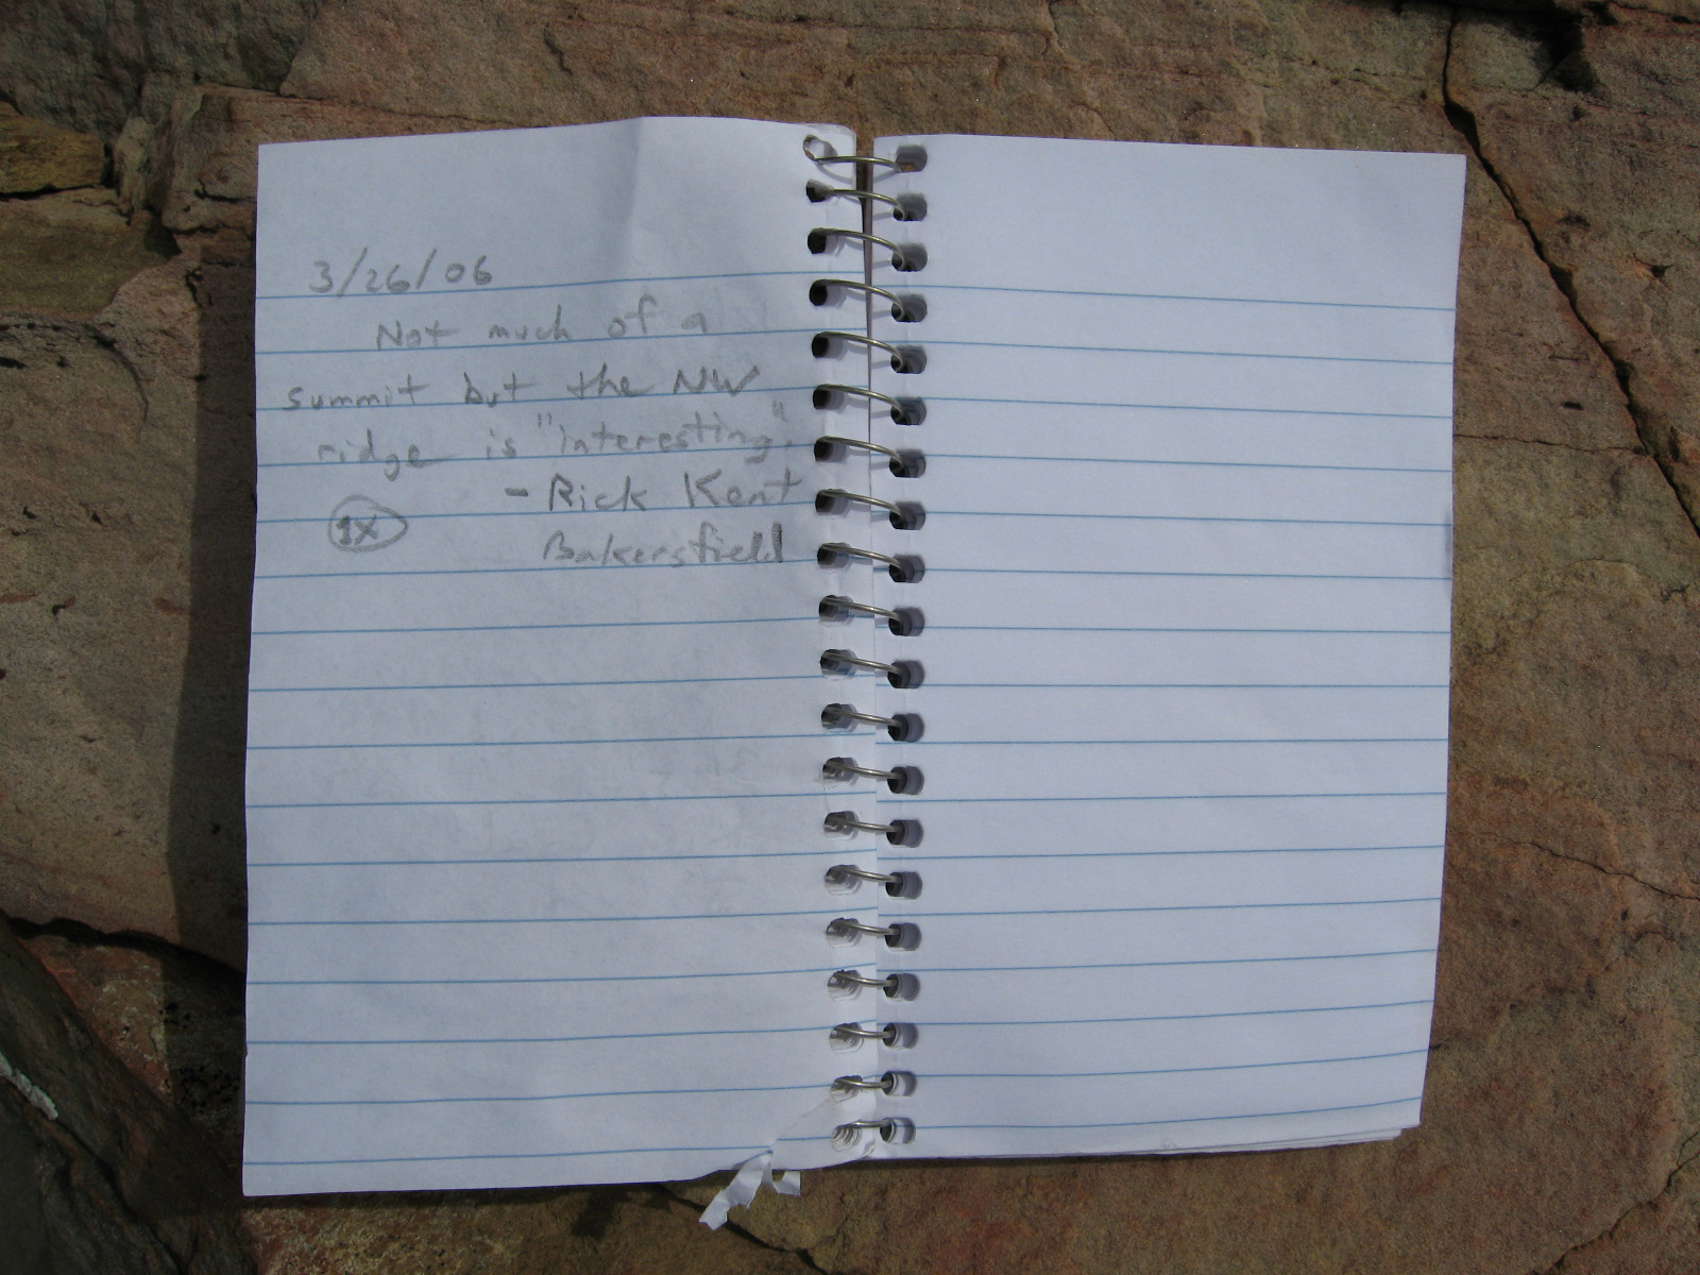 3/26/06
Not much of a
summit but the NW
ridge is "interesting."
- Rick Kent
1X Bakersfield